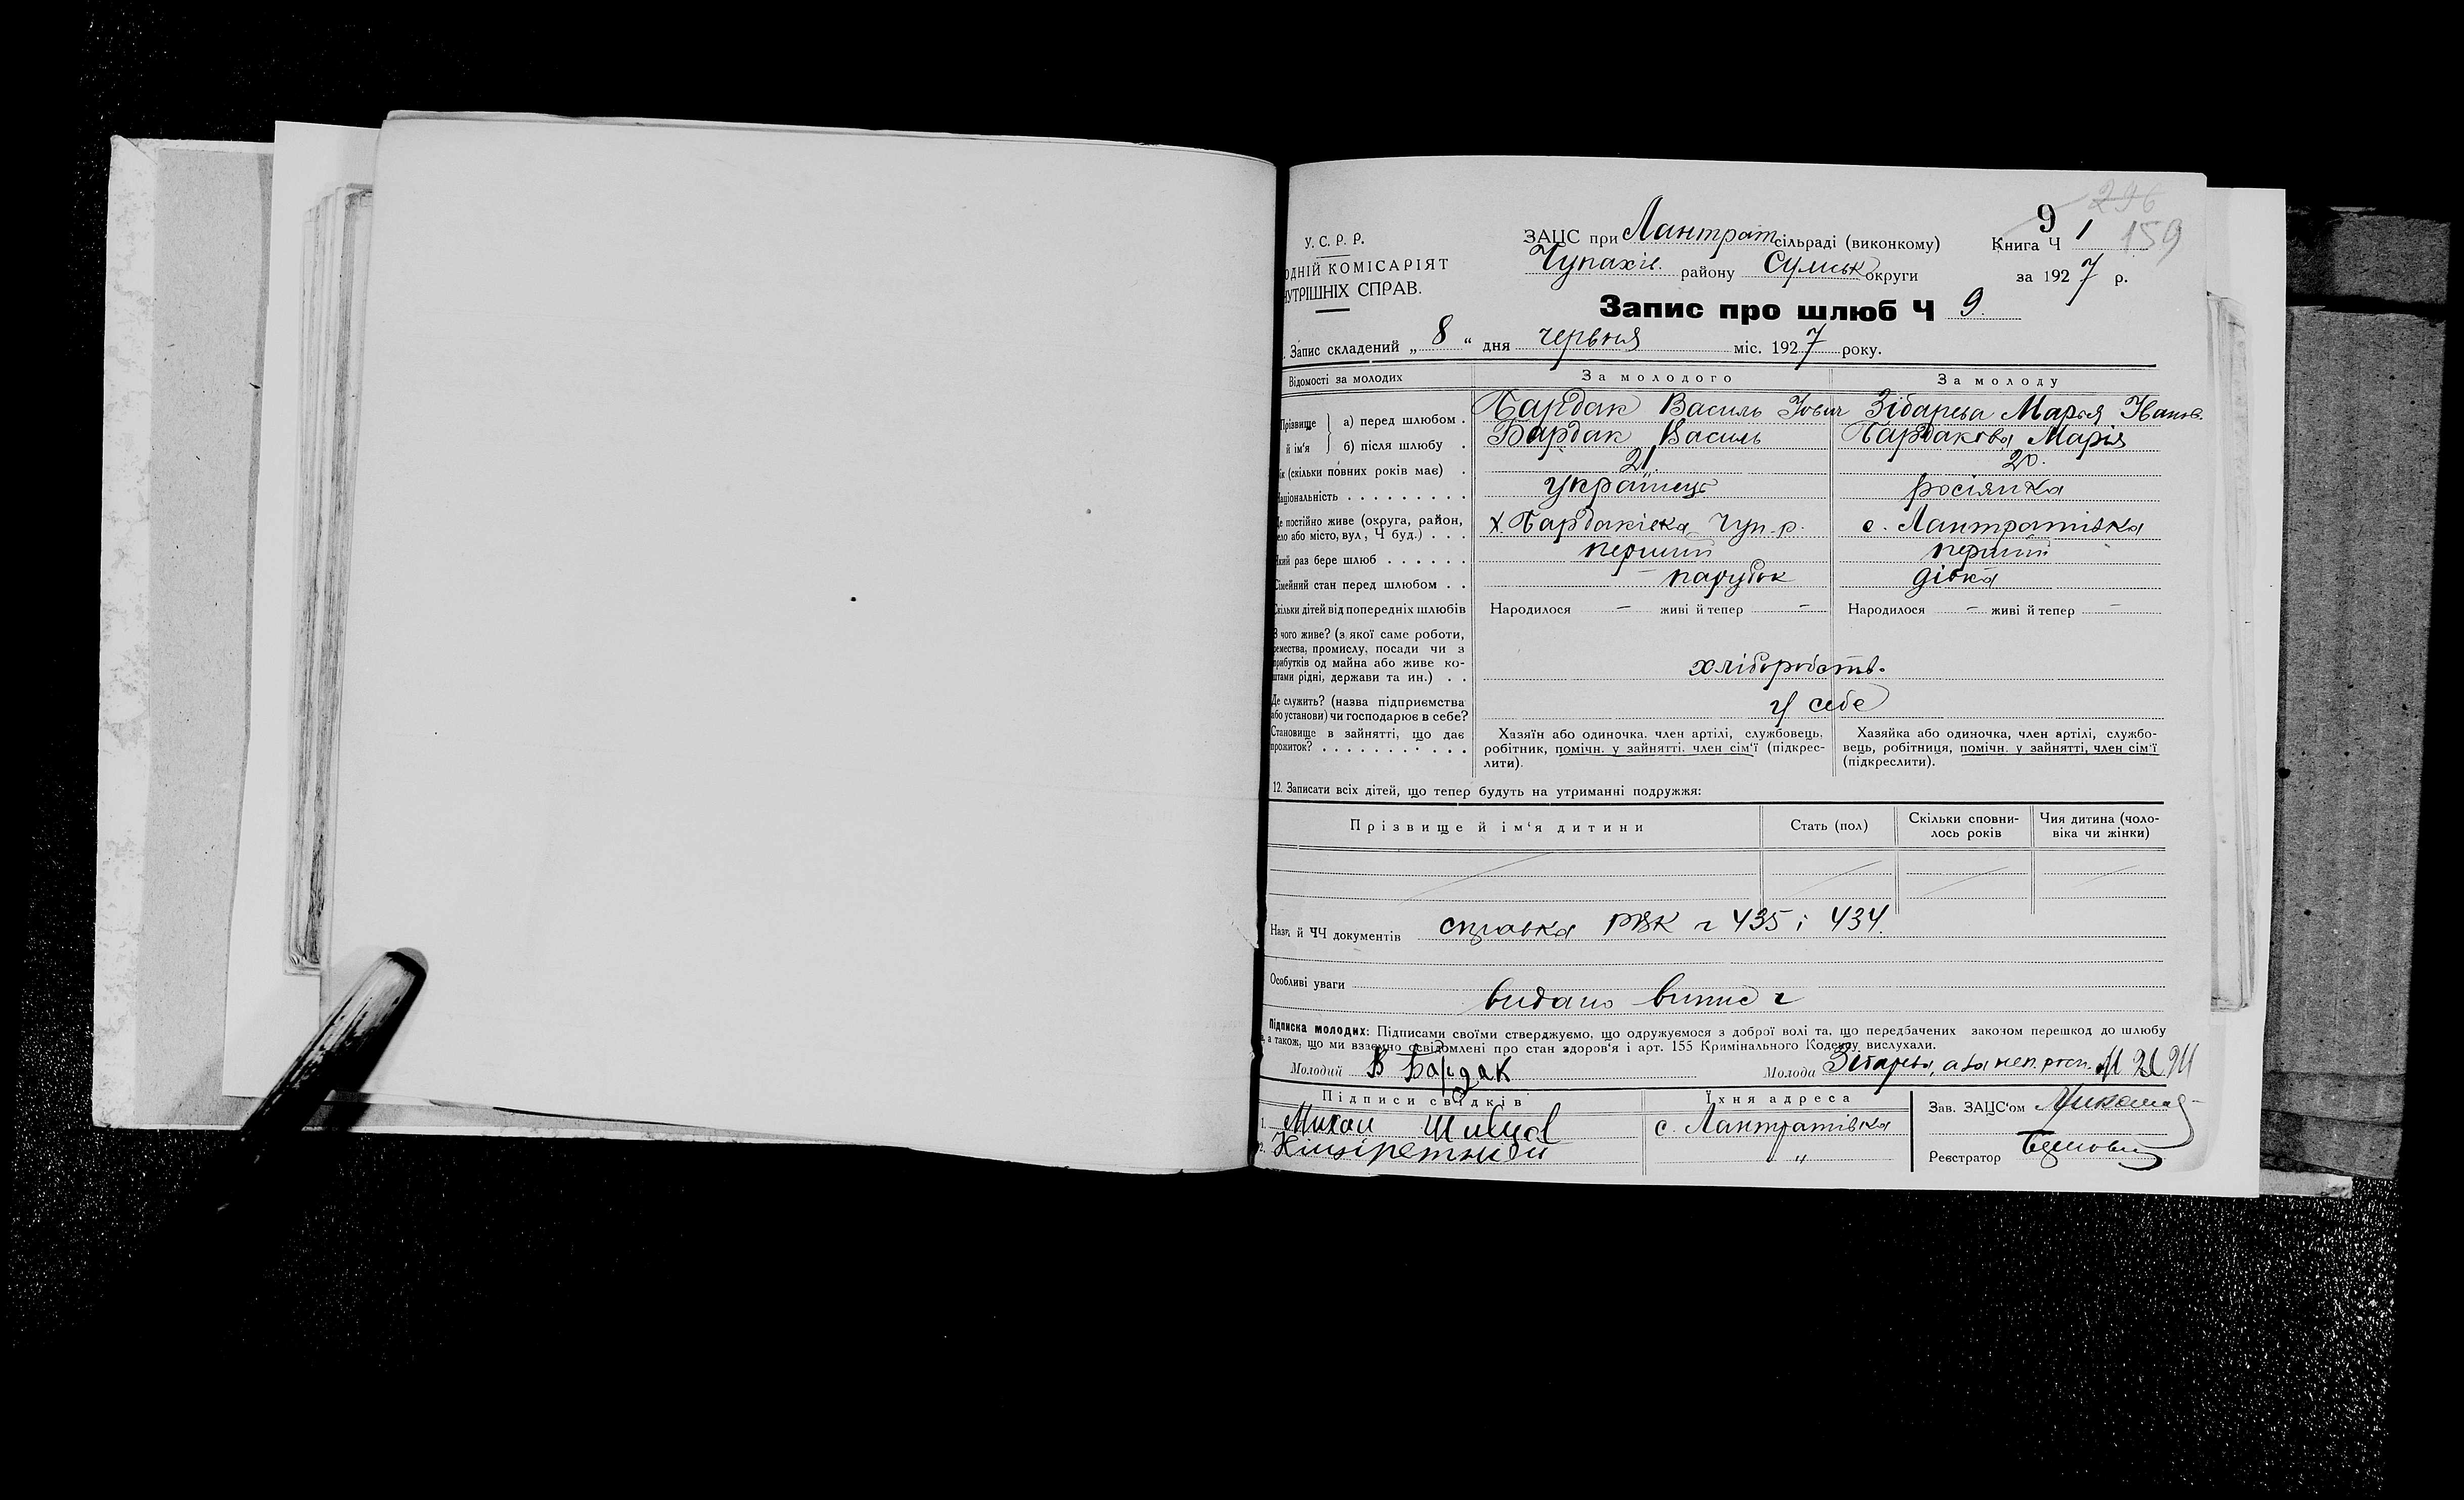 296
9
159
У. С. Р. Р.
ОДНІЙ КОМІСАРІЯТ
НУТРІШНІХ СПРАВ.
ЗАЦС при Лантрат сільраді (виконкому)
Книга Ч 1
Чупахів. району Сумськ округи
за 1927 р.
Запис про шлюб Ч 9.
Запис складений „ 8 “ дня червня міс. 1927 року.
Відомості за молодих
За молодого
За молоду
Прізвище й ім'я
а) перед шлюбом . Бардак Василь Зібарєва Марія Іванів.
б) після шлюбу . Бардак Василь Бардакова Марія
ік (скільки повних років має) . 21. 20.
аціональність . . . . . . . . . українець росіянка
Де постійно живе (округа, район,
ело або місто, вул, Ч буд.) . . . х. Бардаківка Чуп-р. с. Лантратівка
Який раз бере шлюб . . . . . . перший перший
Сімейний стан перед шлюбом . . парубок дівка
Скільки дітей від попередніх шлюбів Народилося – живі й тепер – Народилося – живі й тепер –
З чого живе? (з якої саме роботи,
ремества, промислу, посади чи з
прибутків од майна або живе ко-
штами рідні, держави та ин.) . . хліборобств.
Де служить? (назва підприємства
або установи) чи господарює в себе? у себе
Становище в зайнятті, що дає
прожиток? . . . . . . . . . . .
Хазяїн або одиночка, член артілі, службовець,
робітник, помічн. у зайнятті, член сім'ї (підкрес-
лити).
Хазяйка або одиночка, член артілі, службо-
вець, робітниця, помічн. у зайнятті, член сім'ї
(підкреслити).
12. Записати всіх дітей, що тепер будуть на утриманні подружжя:
Прізвище й ім'я дитини
Стать (пол)
Скільки сповни-
лось років
Чия дитина (чоло-
віка чи жінки)
Назви й ЧЧ документів справка РВК ч 435 і 434.
Особливі уваги
видано випис ч
Підписка молодих: Підписами своїми стверджуємо, що одружуємося з доброї волі та, що передбачених законом перешкод до шлюбу
а також, що ми взаємно освідомлені про стан здоров'я і арт. 155 Кримінального Кодексу вислухали.
Молодий В Бардак
Молода Зібарєва, а за неп. розп.
Підписи свідків
Їхня адреса
1. с. Лантратівка
2. "
Зав. ЗАЦС'ом
Реєстратор